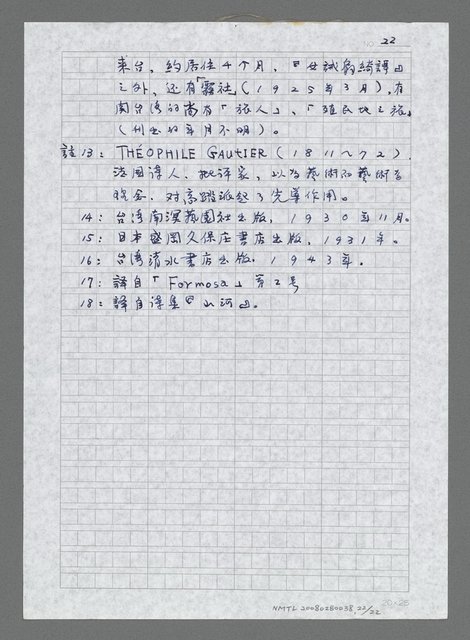 22
來台，約居住4个月，『女誡扇綺譚』
之外，还有「霧社」（1925年3月），有
南台湾的尚有「旅人」、「殖民地之旅」
（刊出的年月不明）。
註13：THÉOPHILE GAUTIER（1811～72）．
法国詩人、批評家，以为藝術而藝術為
対高踏派起了先導作用。
14：台湾南溟藝園社出版，1930年11月。
15：日本盛岡久保庄書店出版，1931年。
16：台湾清水書店出版．1943年．
17：譯自「Formosa」第2号
18：譯自詩集『山河』。
20×25
NMTL 20080280038, 22/22